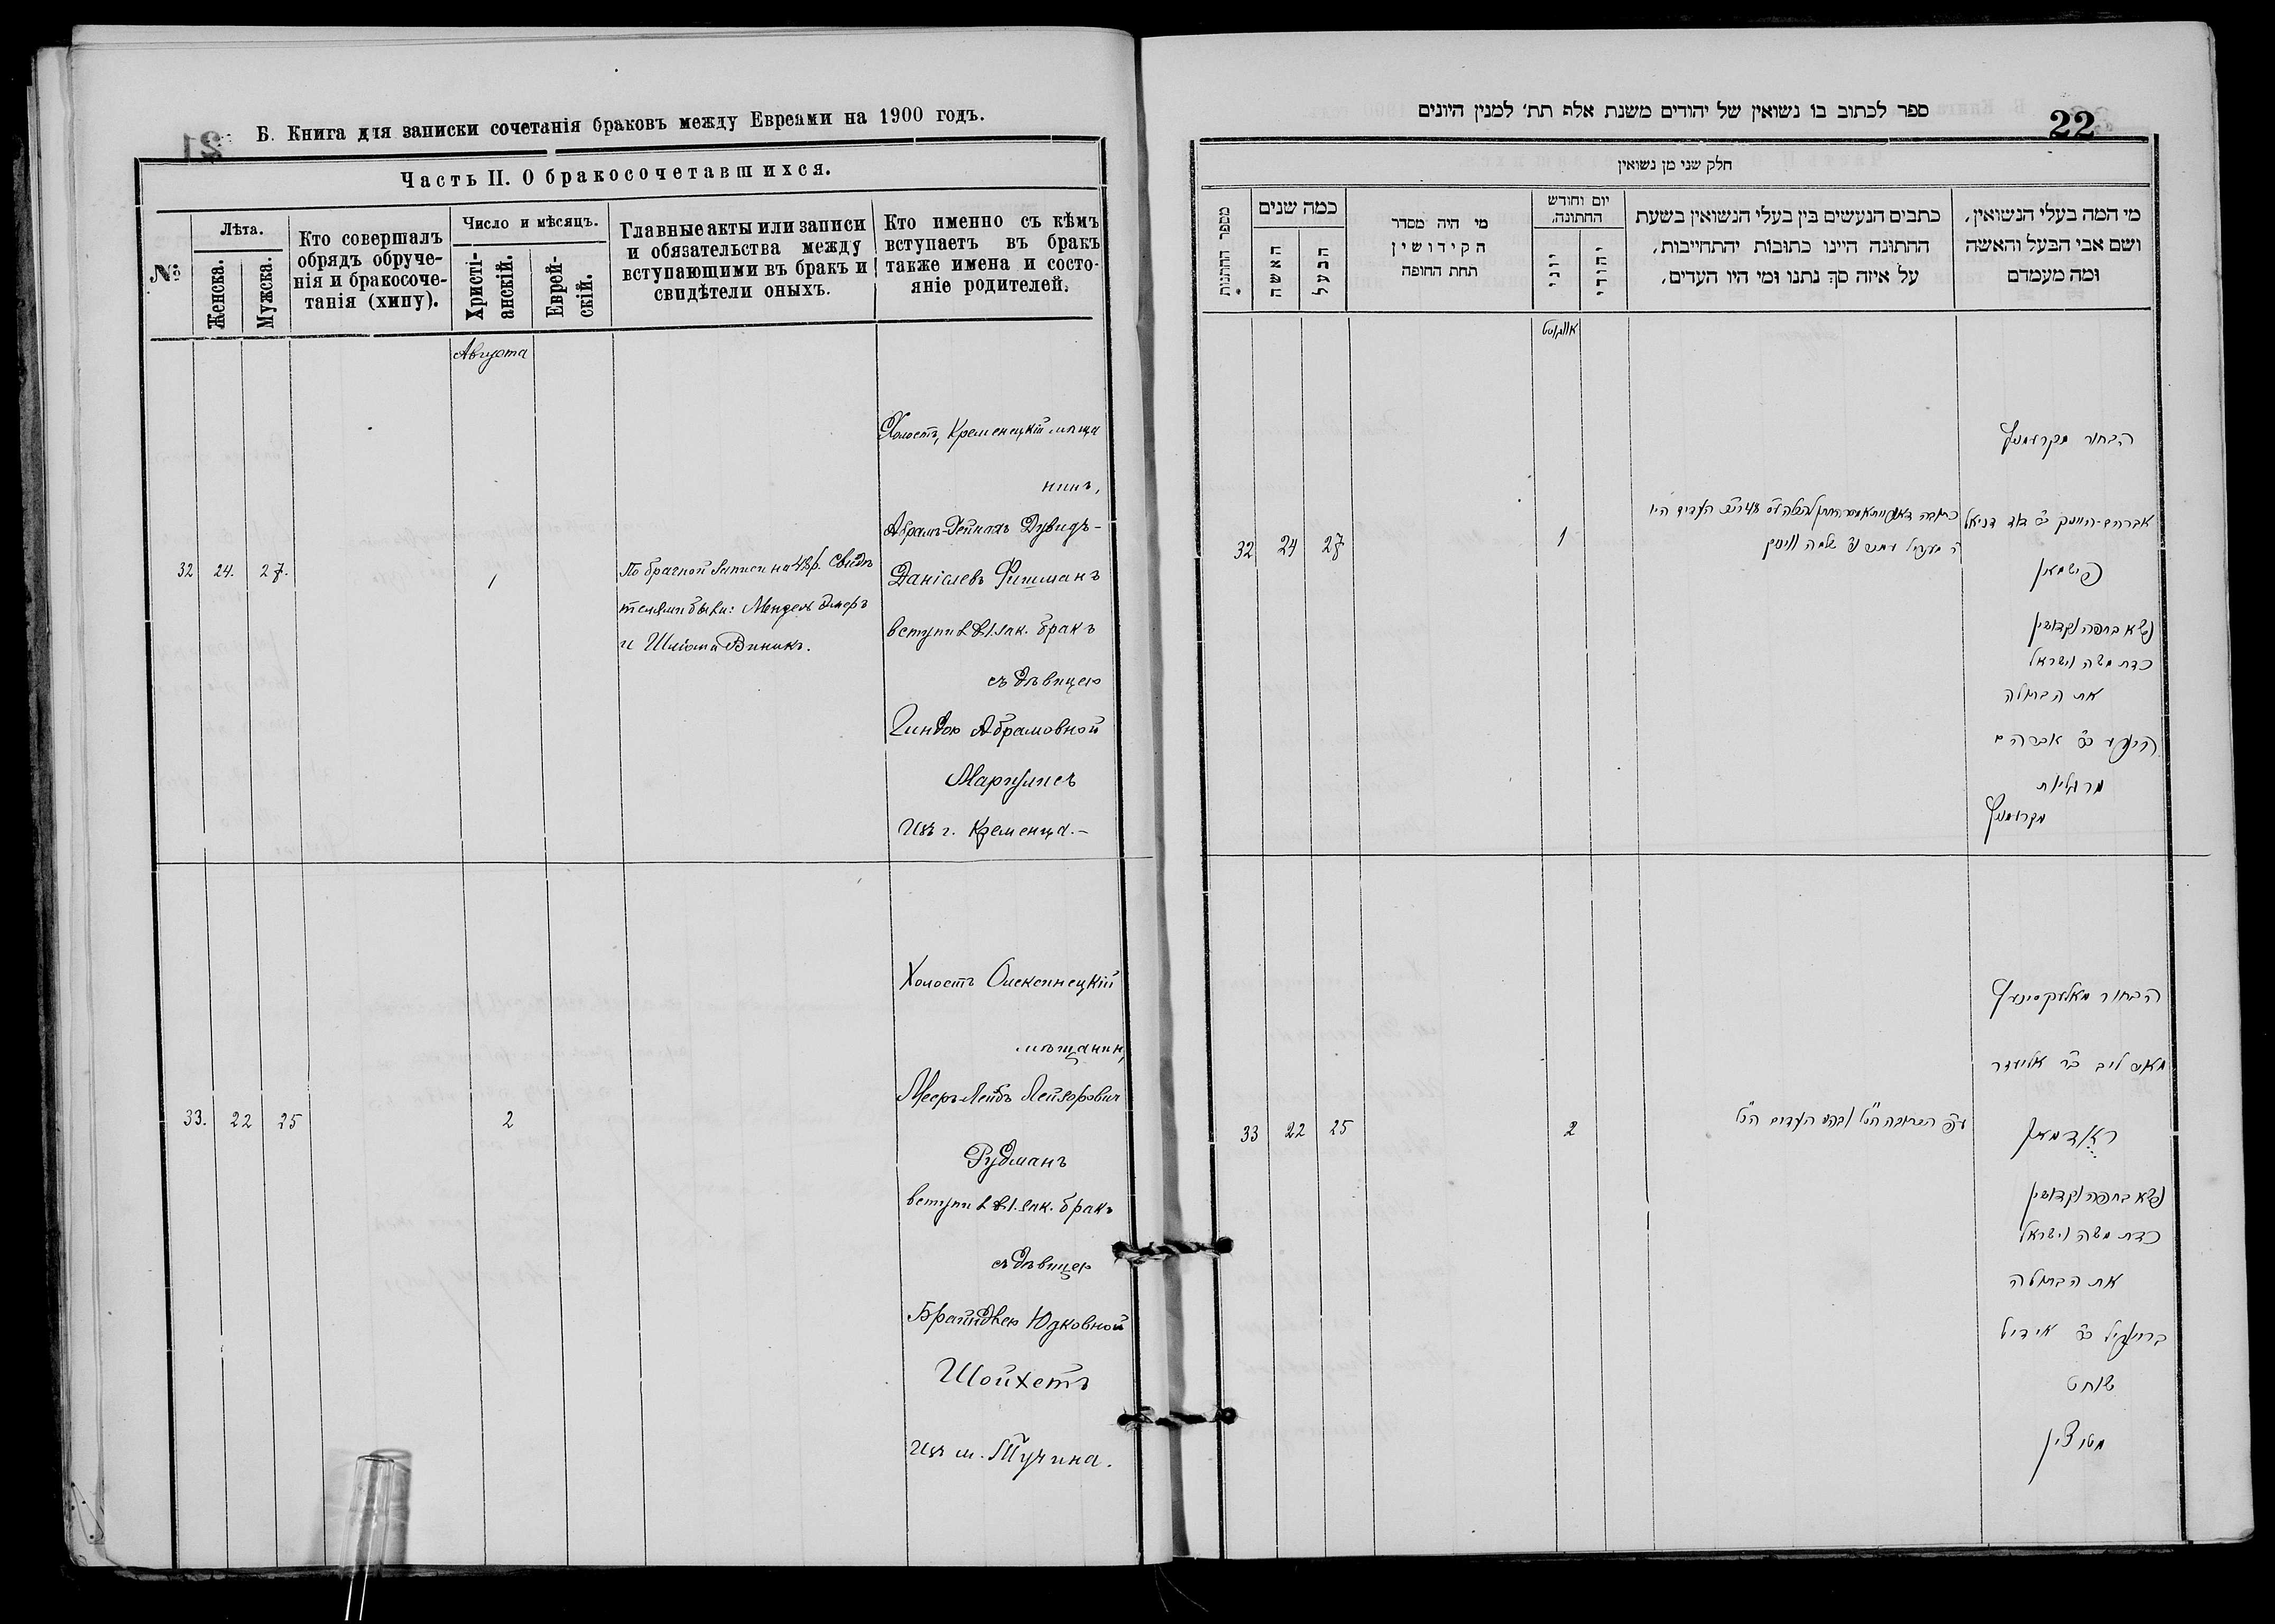 Б. Книга для записки сочетанія браковъ между Евреями на 1900 годъ.
Часть II. О бракосочетавшихся.
№
Лѣта.
Женска.
Мужска.
Кто совершалъ
обрядъ обруче-
нія и бракосоче-
танія (хипу).
Число и мѣсяцъ.
Христі-
анскій.
Еврей-
скій.
Главные акты или записи
и обязательства между
вступающими въ бракъ и
свидѣтели оныхъ.
Кто именно съ кѣмъ
вступаетъ въ бракъ
также имена и состо-
яніе родителей.
Августа
32 24. 27. 1
По брачной записи на 48 р. Свидѣ
телями были: Мендель
и Шлёма Виникъ.
Холостъ, Кременецкій мѣща
нинъ,
Абрамъ-Гейнохъ Дувидъ-
Даніелевъ Фишманъ
вступилъ въ І. зак. бракъ
съ дѣвицею
Гиндою Абрамовной
Маргулисъ
Изъ г. Кременца.-
33. 22 25 2
Холостъ Олексинецкій
мѣщанинъ,
Мееръ-Лейбъ Лейзоровичъ
Рудманъ
вступилъ въ І. зак. бракъ
съ дѣвицею
Брайндлею Юдковной
Шойхетъ
Изъ м. Тучина.
ספר לכתוב בו נשואין של יהודים משנת אלף תת׳ למנין היונים
22
חלק שני מן נשואין
מספר החתונות
כמה שנים
האשה
הבעל
מי היה מסדר
הקידושין
תחת החופה
יום וחודש
החתונה,
יוני
יהודי
כתבים הנעשים בין בעלי הנשואין בשעת
החתונה היינו כתובות יהתחייבות,
על איזה סך נתנו ומי היו העדים,
מי המה בעלי הנשואין,
ושם אבי הבעל והאשה
ומה מעמדם
אווגוסט
32 24 27 1
העדים היו
שלמה וויניק
הבחור מקרעמניץ
אברהם-היינוך ב״ר דוד דניאל
פישמאן
נשא בחופה וקדושין
כדת משה וישראל
את הבתולה
הינדע ב״ר אברהם
מרגליות
מקרעמניץ
33 22 25 2
ע״פ הכתובה הנ״ל ובפני העדים הנ״ל
הבחור מאלעקסיניץ
מאיר ליב ב״ר אליעזר
רודמאן
נשא בחופה וקדושין
כדת משה וישראל
את הבתולה
בריינדיל ב״ר אידיל
שוחט
מטוצין